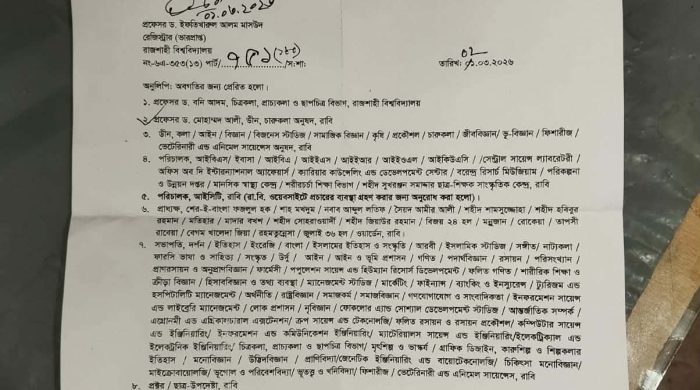 ০২.০৩.২০২৬
প্রফেসর ড. ইফতিখারুল আলম মাসউদ
রেজিস্ট্রার (ভারপ্রাপ্ত)
রাজশাহী বিশ্ববিদ্যালয়
নং-৬এ-৩৫৩(১৩) পার্ট/ /সংশা: তারিখ: ০২.০৩.২০২৬
অনুলিপি: অবগতির জন্য প্রেরিত হলো।
১. প্রফেসর ড. বনি আদম, চিত্রকলা, প্রাচ্যকলা ও ছাপচিত্র বিভাগ, রাজশাহী বিশ্ববিদ্যালয়
২. প্রফেসর ড. মোহাম্মদ আলী, ডীন, চারুকলা অনুষদ, রাবি
৩. ডীন, কলা / আইন / বিজ্ঞান / বিজনেস স্টাডিজ / সামাজিক বিজ্ঞান / কৃষি / প্রকৌশল / চারুকলা / জীববিজ্ঞান/ ভূ-বিজ্ঞান / ফিশারীজ /
ভেটেরিনারী এন্ড এনিমেল সায়েন্সেস অনুষদ, রাবি
৪. পরিচালক, আইবিএস/ ইবাসা / আইবিএ / আইইএস / আইইআর / আইইওএল / আইকিউএসি / /সেন্ট্রাল সায়েন্স ল্যাবরেটরী /
অফিস অব দি ইন্টারন্যাশনাল অ্যাফেয়ার্স / ক্যারিয়ার কাউন্সেলিং এন্ড ডেভেলপমেন্ট সেন্টার / বরেন্দ্র রিসার্চ মিউজিয়াম / পরিকল্পনা
ও উন্নয়ন দপ্তর / মানসিক স্বাস্থ্য কেন্দ্র / শরীরচর্চা শিক্ষা বিভাগ / শহীদ সুখরঞ্জন সমাদ্দার ছাত্র-শিক্ষক সাংস্কৃতিক কেন্দ্র, রাবি
৫. পরিচালক, আইসিটি, রাবি (রা.বি. ওয়েবসাইটে প্রচারের ব্যবস্থা গ্রহণ করার জন্য অনুরোধ করা হলো)।
৬. প্রাধ্যক্ষ, শের-ই-বাংলা ফজলুল হক / শাহ্ মখদুম / নবাব আব্দুল লতিফ / সৈয়দ আমীর আলী / শহীদ শামসুজ্জোহা / শহীদ হবিবুর
রহমান / মতিহার / মাদার বখশ / শহীদ সোহরাওয়ার্দী / শহীদ জিয়াউর রহমান / বিজয় ২৪ হল / মন্নুজান / রোকেয়া / তাপসী
রাবেয়া / বেগম খালেদা জিয়া / রহমতুন্নেসা / জুলাই ৩৬ হল / ওয়ার্ডেন, রাবি।
৭. সভাপতি, দর্শন / ইতিহাস / ইংরেজি / বাংলা / ইসলামের ইতিহাস ও সংস্কৃতি / আরবী / ইসলামিক স্টাডিজ / সঙ্গীত/ নাট্যকলা /
ফারসি ভাষা ও সাহিত্য / সংস্কৃত / উর্দু / আইন / আইন ও ভূমি প্রশাসন / গণিত / পদার্থবিজ্ঞান / রসায়ন / পরিসংখ্যান /
প্রাণরসায়ন ও অনুপ্রাণবিজ্ঞান / ফার্মেসী / পপুলেশন সায়েন্স এন্ড হিউম্যান রিসোর্স ডিভেলপমেন্ট / ফলিত গণিত / শারীরিক শিক্ষা ও
ক্রীড়া বিজ্ঞান / হিসাববিজ্ঞান ও তথ্য ব্যবস্থা / ম্যানেজমেন্ট স্টাডিজ / মার্কেটিং / ফাইন্যান্স / ব্যাংকিং ও ইনস্যুরেন্স / ট্যুরিজম এন্ড
হসপিটালিটি ম্যানেজমেন্ট / অর্থনীতি / রাষ্ট্রবিজ্ঞান / সমাজকর্ম / সমাজবিজ্ঞান / গণযোগাযোগ ও সাংবাদিকতা / ইনফরমেশন সায়েন্স
এন্ড লাইব্রেরি ম্যানেজমেন্ট / লোক প্রশাসন / নৃবিজ্ঞান / ফোকলোর এ্যান্ড সোশ্যাল ডেভেলপমেন্ট স্টাডিজ / আন্তর্জাতিক সম্পর্ক /
এগ্রোনমী এন্ড এগ্রিকালচারাল এক্সটেনশন/ ক্রপ সায়েন্স এন্ড টেকনোলজি/ ফলিত রসায়ন ও রসায়ন প্রকৌশল/ কম্পিউটার সায়েন্স
এন্ড ইঞ্জিনিয়ারিং/ ইনফরমেশন এন্ড কমিউনিকেশন ইঞ্জিনিয়ারিং/ ম্যাটেরিয়ালস সায়েন্স এন্ড ইঞ্জিনিয়ারিং/ইলেকট্রিক্যাল এন্ড
ইলেকট্রনিক ইঞ্জিনিয়ারিং/ চিত্রকলা, প্রাচ্যকলা ও ছাপচিত্র বিভাগ/ মৃৎশিল্প ও ভাস্কর্য / গ্রাফিক ডিজাইন, কারুশিল্প ও শিল্পকলার
ইতিহাস / মনোবিজ্ঞান / উদ্ভিদবিজ্ঞান / প্রাণিবিদ্যা/জেনেটিক ইঞ্জিনিয়ারিং এন্ড বায়োটেকনোলজি/ চিকিৎসা মনোবিজ্ঞান/
মাইক্রোবায়োলজি/ ভূগোল ও পরিবেশবিদ্যা/ ভূতত্ত্ব ও খনিবিদ্যা/ ফিশারীজ / ভেটেরিনারী এন্ড এনিমেল সায়েন্সেস, রাবি
৮. প্রক্টর / ছাত্র-উপদেষ্টা, রাবি